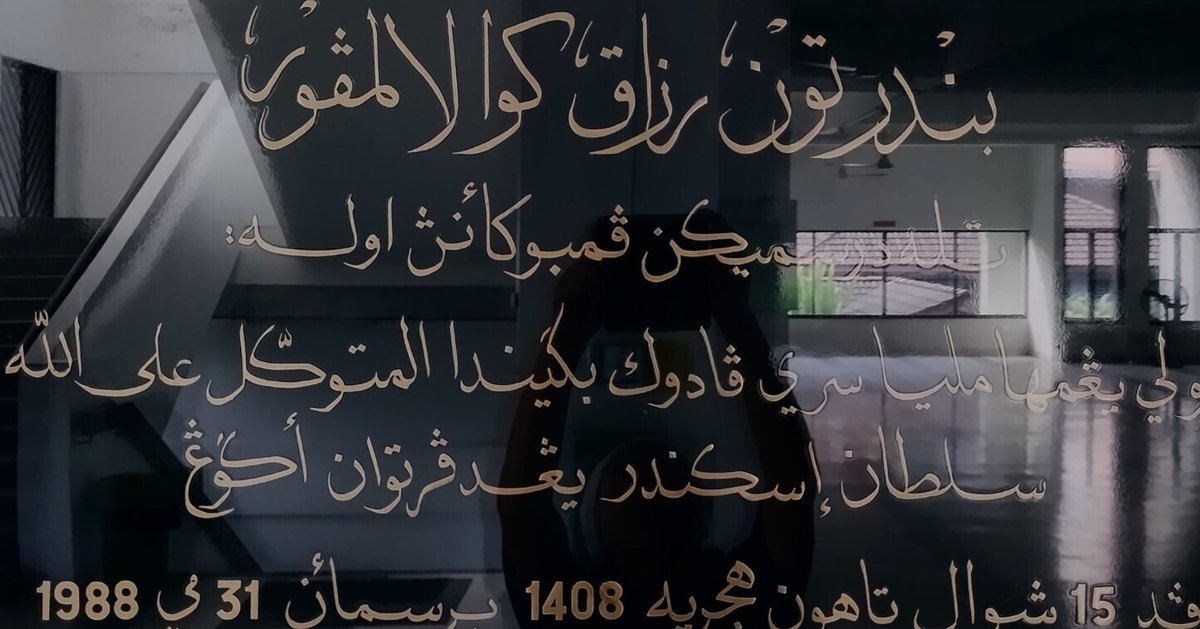 بندر تون رزاق كوالا لمڤور
تله درسميكن ڤمبوكائنڽ اوله:
ولي يڠمها مليا سري ڤادوك بݢيندا المتوكّل على اللّه
سلطان إسكندر يڠدڤرتوان أݢوڠ
ڤد 15 شوال تاهون هجريه 1408 برسمأن 31 مي 1988